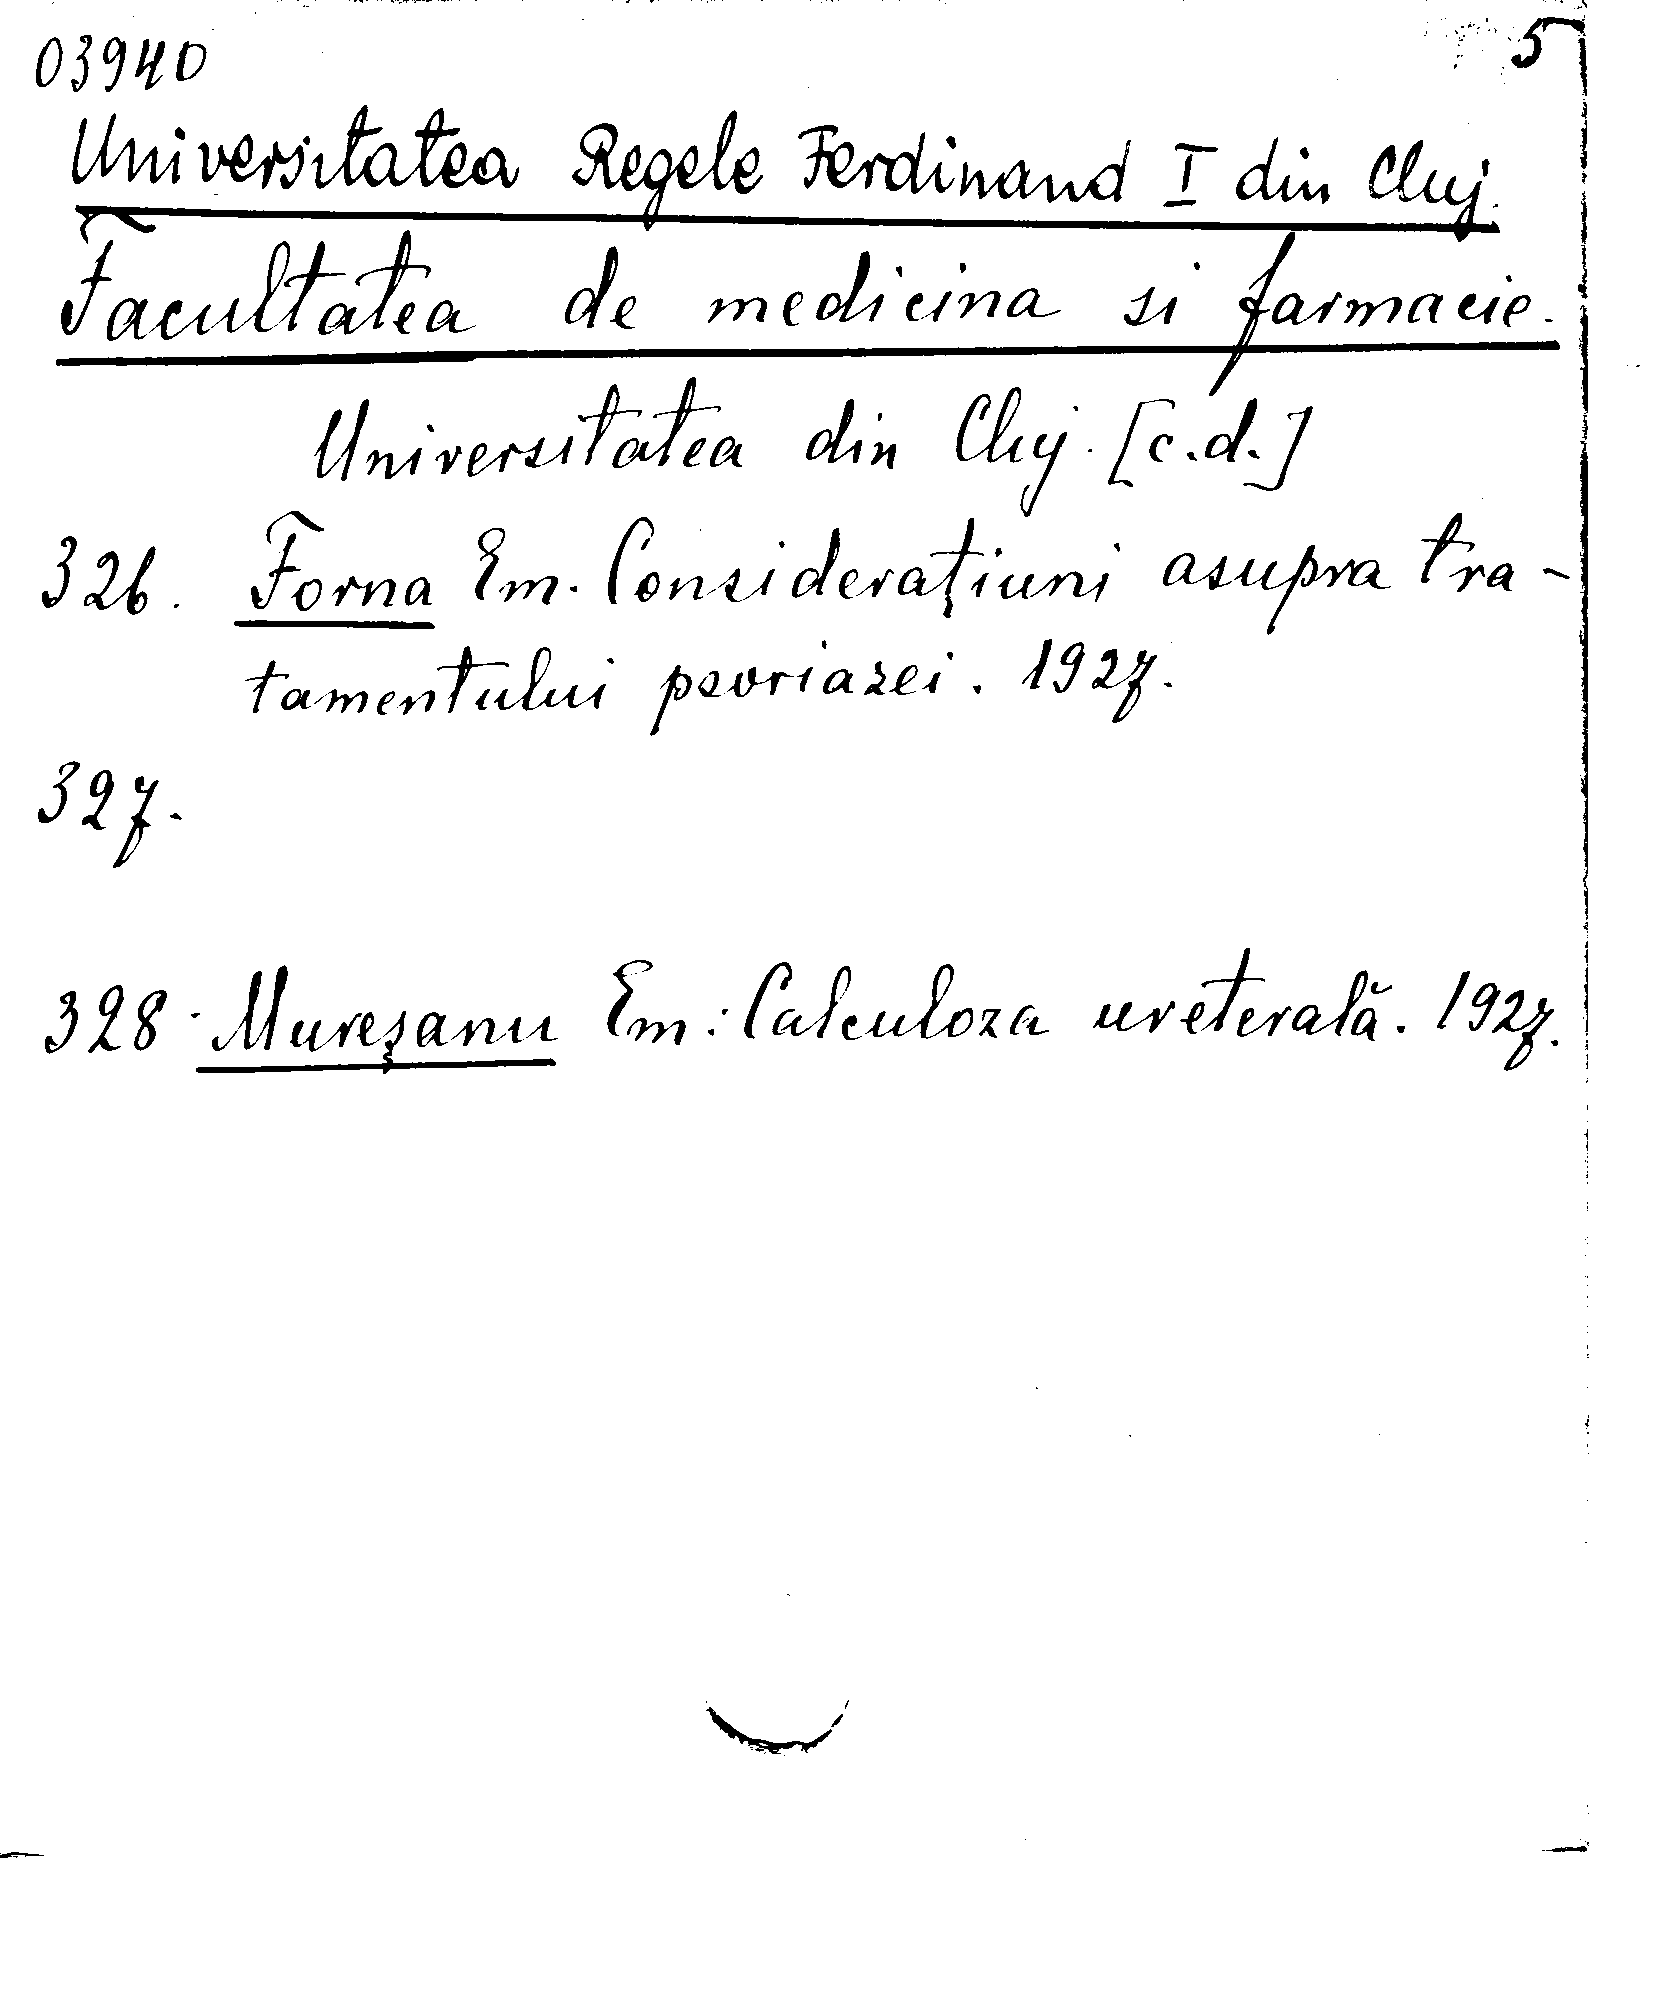 03940 5
Universitatea Regele Ferdinand I din Cluj.
Facultatea de medicina si farmacie.
Universitatea din Cluj. [c.d.]
326. Forna Em. Considerațiuni asupra tra-
tamentului psoriazei. 1927.
327.
328. Mureşanu Em: Calculoza ureterală. 1927.